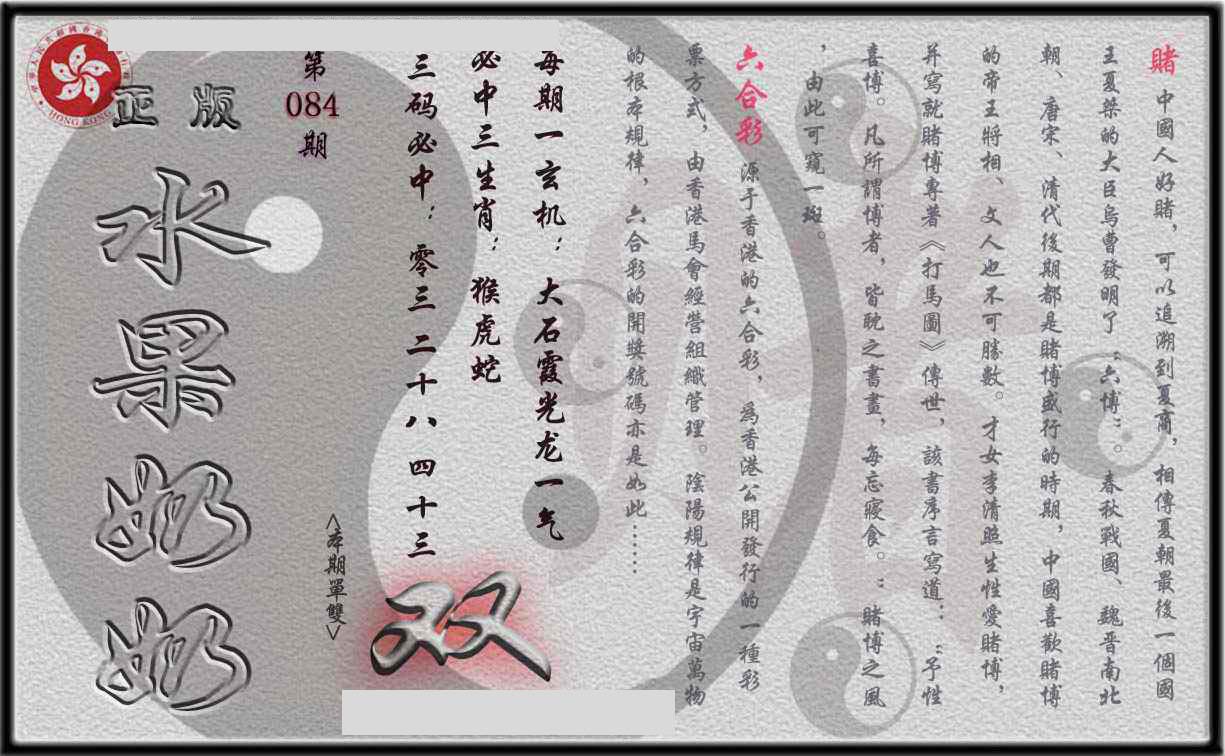 賭 中國人好賭，可以追溯到夏商，相傳夏朝最後一個國
王夏桀的大臣烏曹發明了“六博”。春秋戰國、魏晋南北
朝、唐宋、清代後期都是賭博盛行的時期，中國喜歡賭博
的帝王將相、文人也不可勝數。才女李清照生性愛賭博，
并寫就賭博專著《打馬圖》傳世，該書序言寫道：“予性
喜博。凡所謂博者，皆耽之書畫，每忘寢食。”賭博之風
，由此可窺一斑。
六合彩 源于香港的六合彩，爲香港公開發行的一種彩
票方式，由香港馬會經營組織管理。陰陽規律是宇宙萬物
的根本規律，六合彩的開獎號碼亦是如此……
每期一玄机：大石霞光龙一气
必中三生肖：猴虎蛇
三码必中：零三 二十八 四十三
双
<本期單雙>
第084期
正版
水果奶奶
HONG KONG